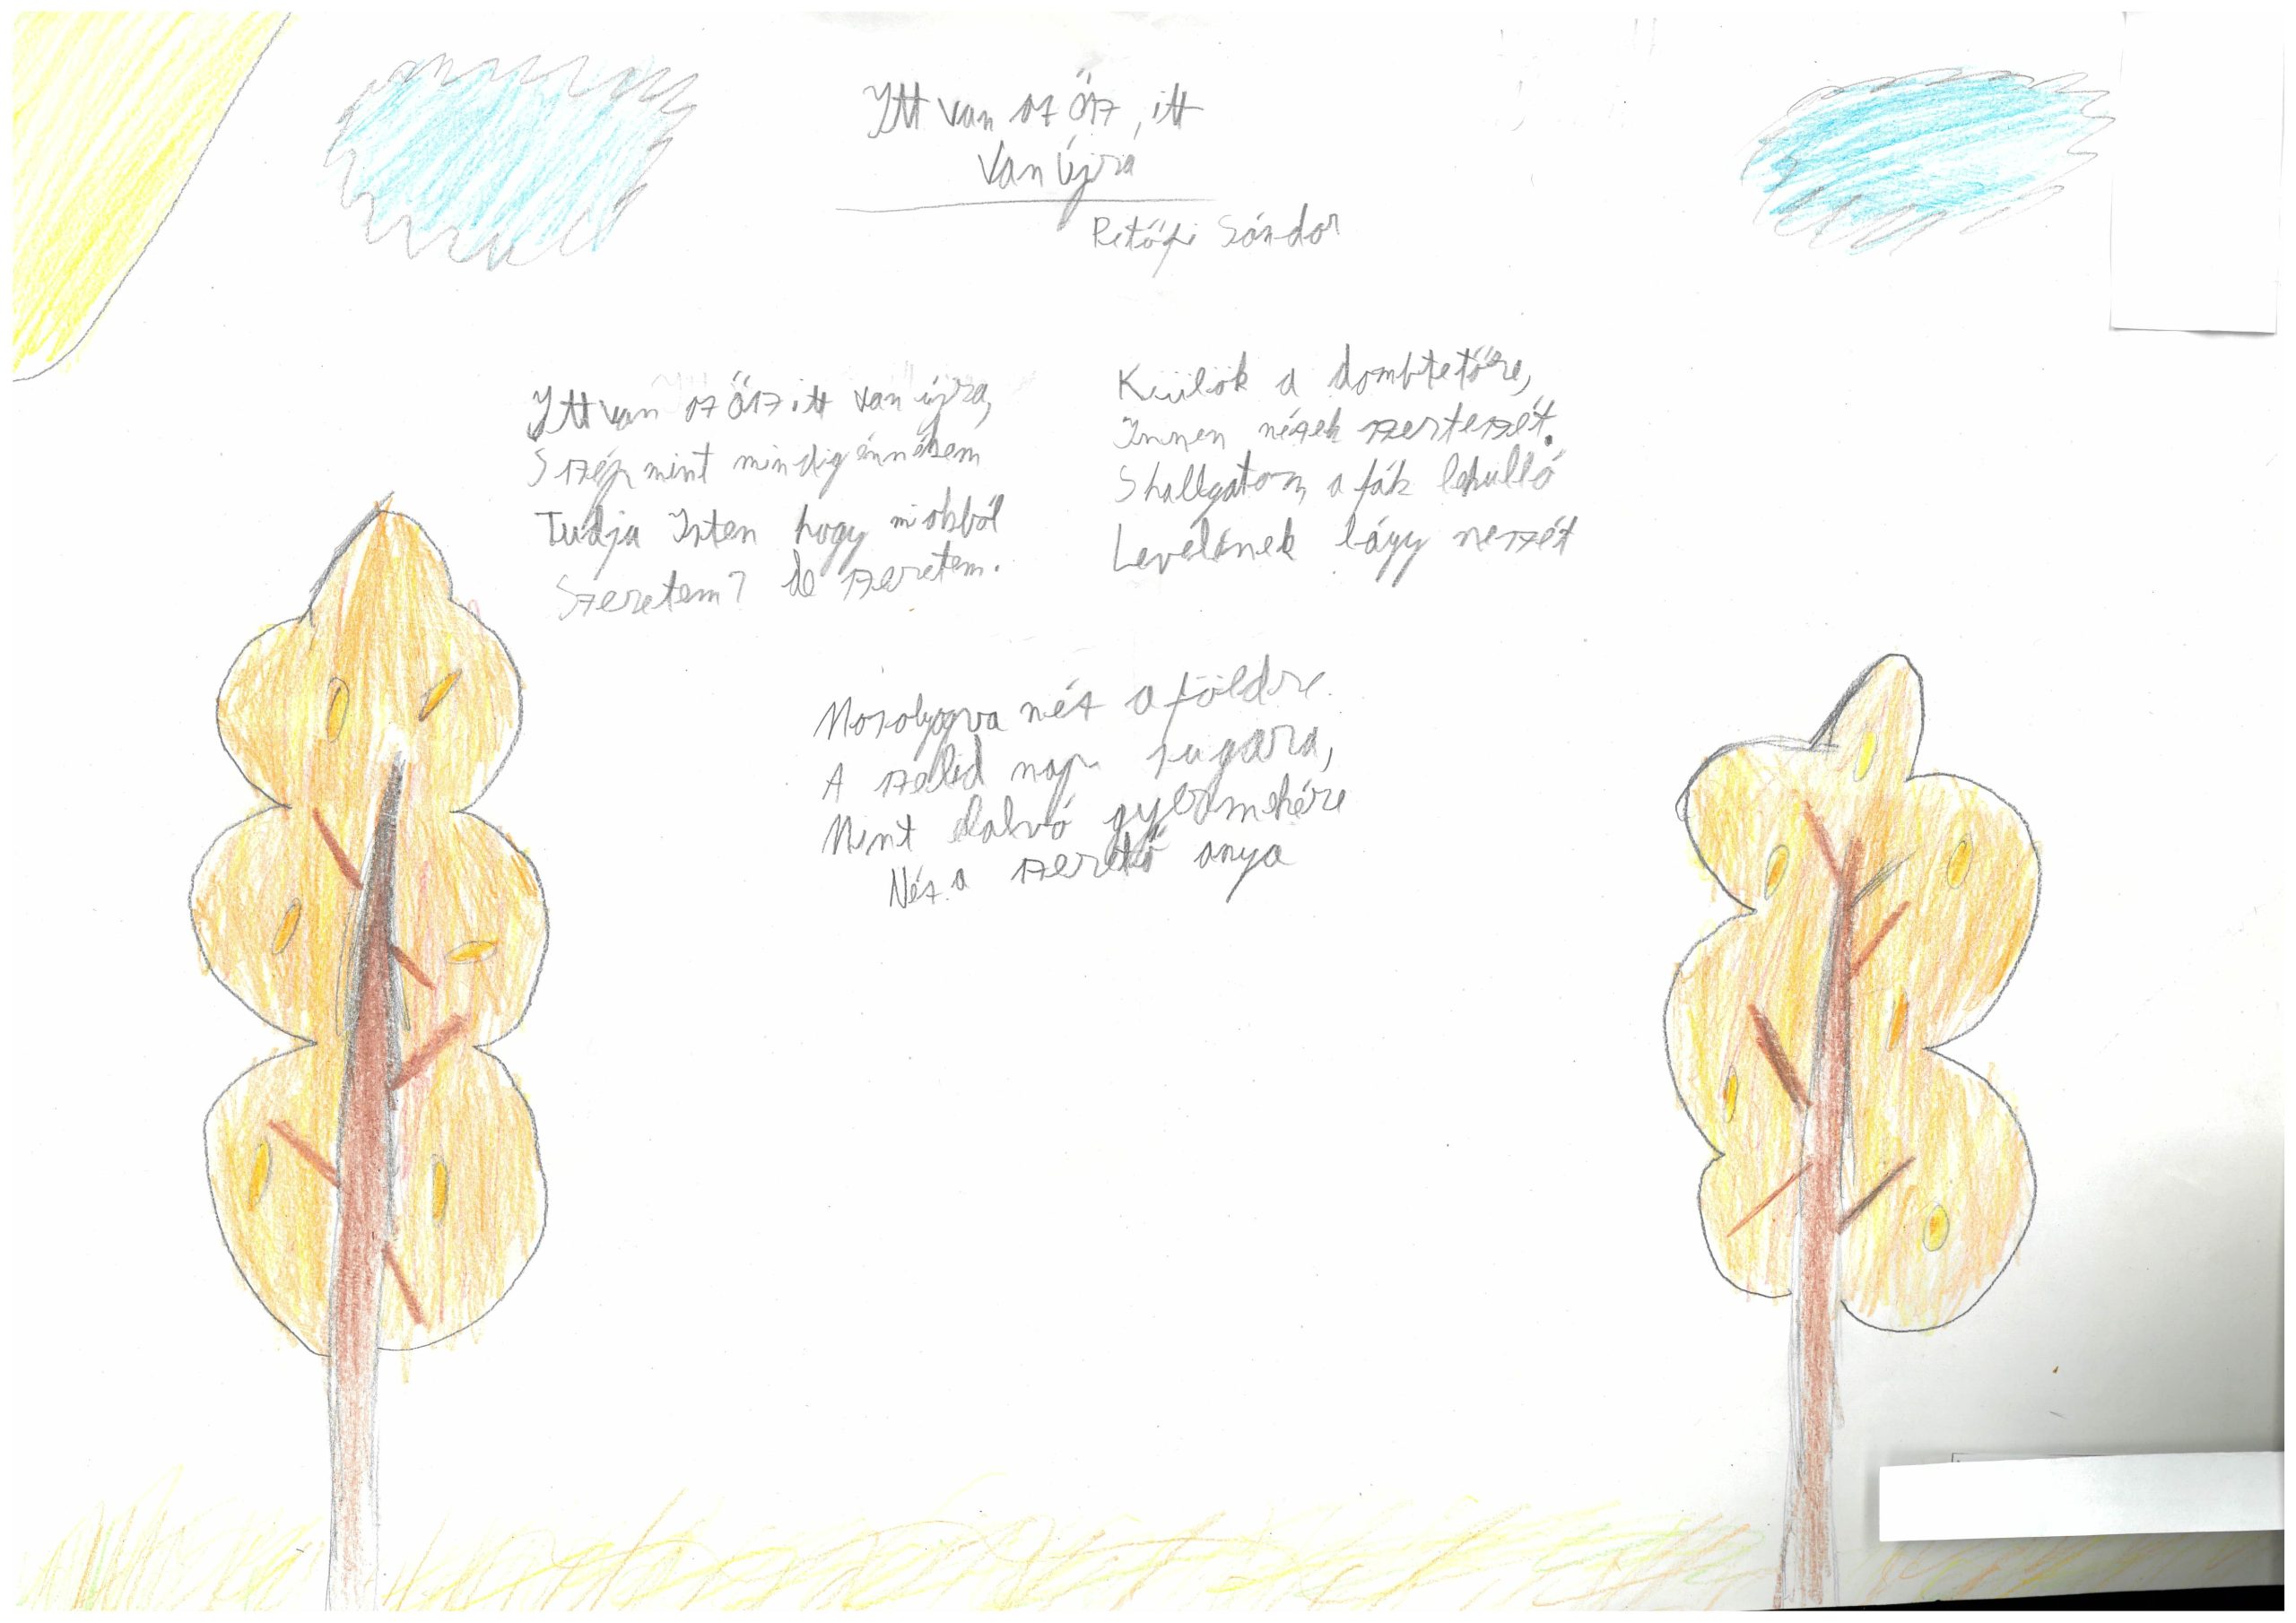 Itt van az ősz, itt
van újra
Petőfi Sándor
Itt van az ősz itt van újra,
Szép mint mindig énnékem
Tudja Isten hogy miokból
Szeretem? de szeretem.
Kiülök a dombtetőre,
Innen nézek szerteszét.
S hallgatom a fák lehulló
Levelének lágy neszét
Mosolyogva néz a földre
A szelid nap sugara,
Mint elalvó gyermekére
Néz a szerető anya